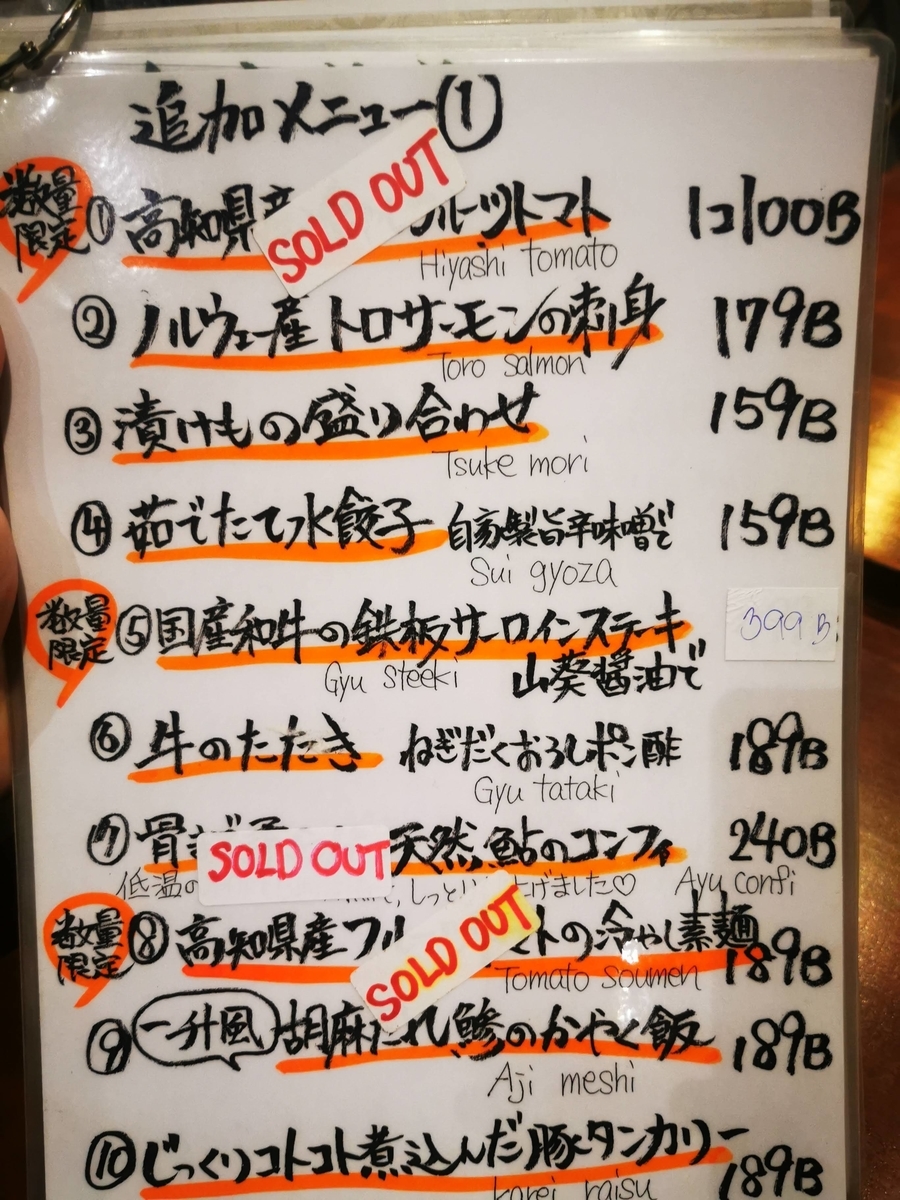 追加メニュー①
数量限定
① 高知県産 SOLD OUT フルーツトマト 1コ100B
Hiyashi tomato
② ノルウェー産トロサーモンの刺身 179B
Toro salmon
③ 漬けもの盛り合わせ 159B
Tsuke mori
④ 茹でたて水餃子 自家製旨辛味噌で 159B
Sui gyoza
数量限定
⑤ 国産和牛の鉄板サーロインステーキ 399B
Gyu steeki 山葵醤油で
⑥ 牛のたたき ねぎだくおろしポン酢 189B
Gyu tataki
⑦ 骨まで SOLD OUT 天然鮎のコンフィ 240B
低温の しっとり 上げました♡ Ayu confi
数量限定
⑧ 高知県産フル SOLD OUT マトの冷やし素麺 189B
Tomato soumen
⑨ 一升風 胡麻だれ鯵のかやく飯 189B
Aji meshi
⑩ じっくりコトコト煮込んだ豚タンカリー 189B
karei raisu